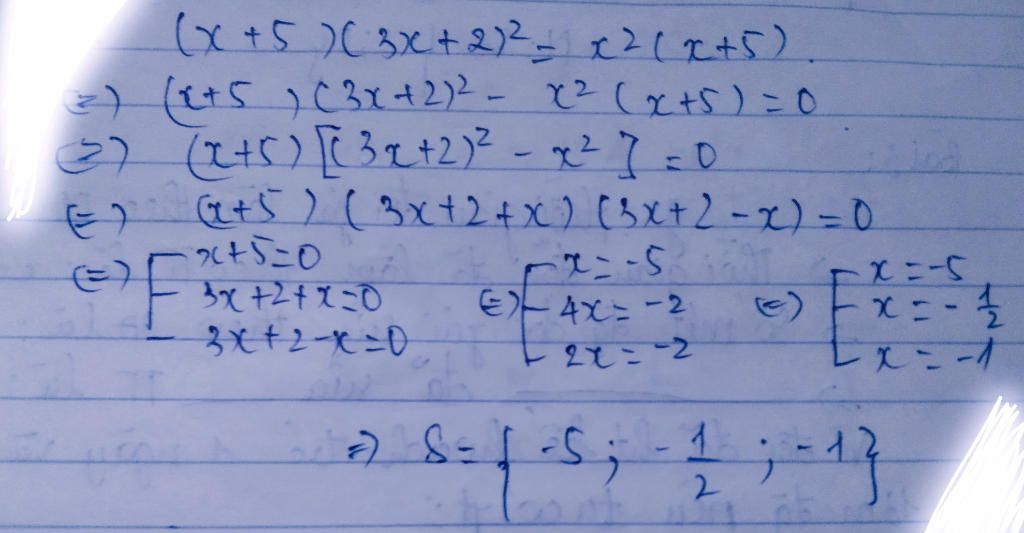 (x+5)(3x+2)² = x²(x+5).
⇔ (x+5)(3x+2)² - x²(x+5) = 0
⇔ (x+5)[(3x+2)² - x²] = 0
⇔ (x+5)(3x+2+x)(3x+2-x) = 0
⇔ [ x+5=0 ⇔ [ x=-5 ⇔ [ x=-5
3x+2+x=0 4x=-2 x=-1/2
3x+2-x=0 2x=-2 x=-1
⇒ S={-5; -1/2; -1}